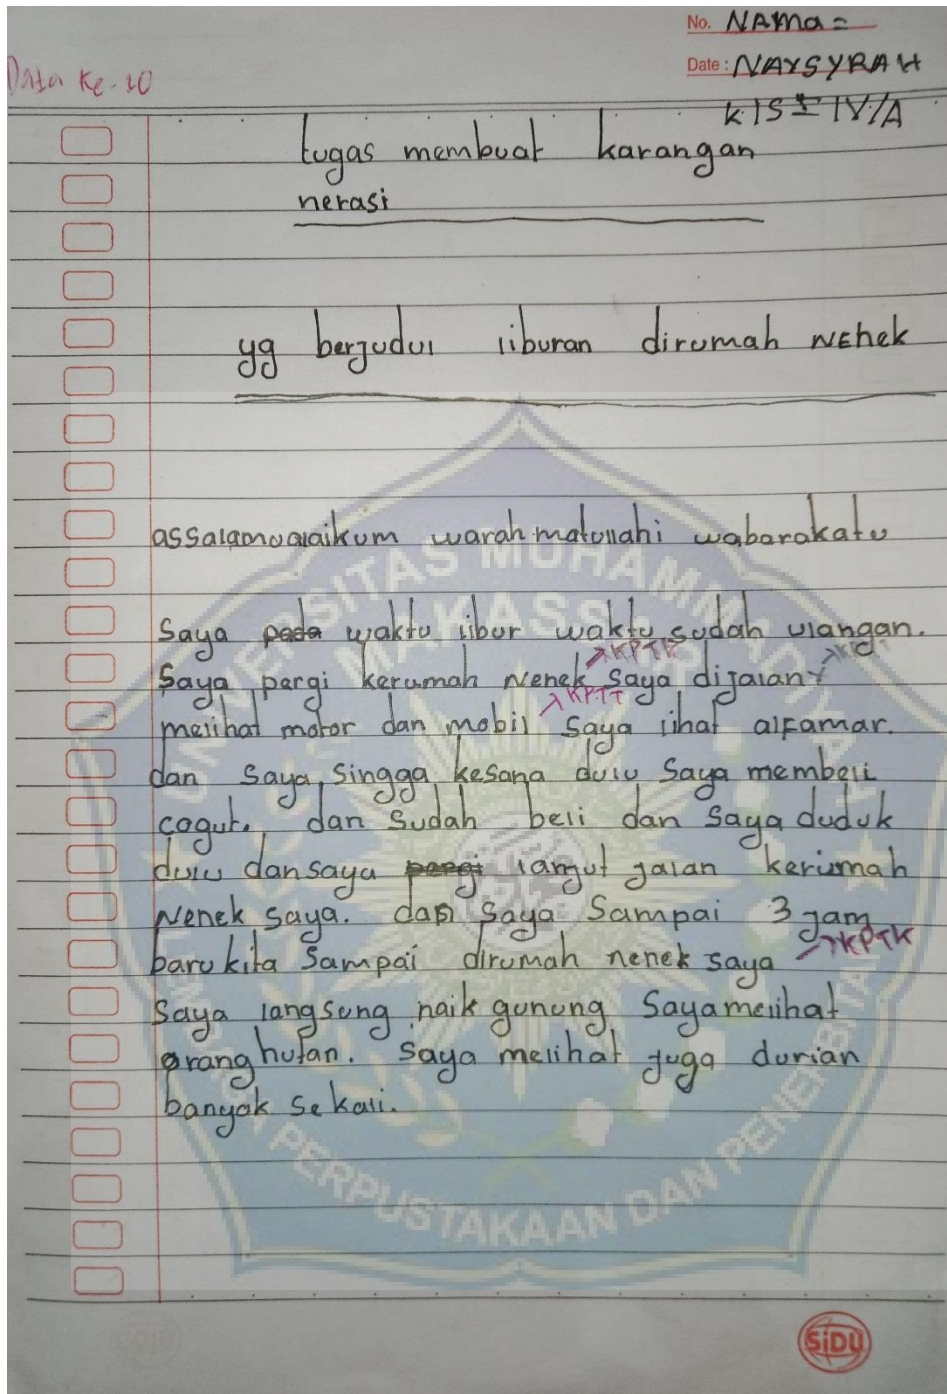 No. NAMa =
Data Ke-10
Date: NAYSYRAH
klS = IV/A
tugas membuat karangan
nerasi
yg berjudul liburan dirumah NEnek
assalamualaikum warahmatullahi wabarakatu
Saya pada waktu libur waktu sudah ulangan.
KPTK
Saya pergi kerumah Nenek Saya dijalan
KPTT
melihat motor dan mobil Saya lihat alfamar.
dan saya singga kesana dulu Saya membeli
cogut. dan Sudah beli dan Saya duduk
dulu dan saya pergi langut jalan kerumah
Nenek Saya. dan Saya Sampai 3 jam
baru kita Sampai dirumah nenek saya KPTK
Saya langsung naik gunung Saya melihat
orang hutan. Saya melihat juga durian
banyak sekali.
UNIVERSITAS MUHAMMADIYAH
MAKASSAR
LEMBAGA PERPUSTAKAAN DAN PENERBITAN
SiDU